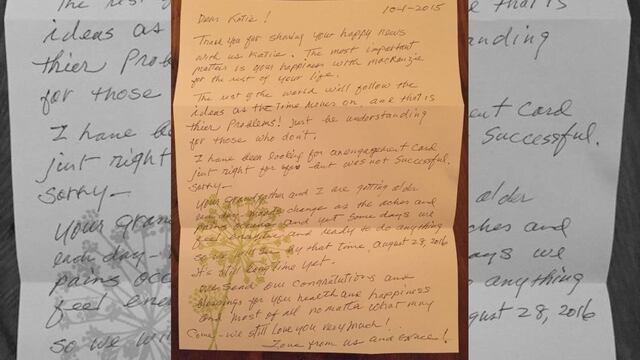 10-1-2015
Dear Katie!
Thank you for sharing your happy news
with us Katie. The most important
matter is your happiness with mackenzie
for the rest of your life.
The rest of the world will follow the
ideas as the time moves on, and that is
thier Problems! Just be understanding
for those who don't.
I have been looking for an engagement Card
just right for you - but was not successful.
Sorry-
Your grandfather and I are getting older
each day - moods change as the aches and
pains occure and yet some days we
feel energetic and ready to do anything
so we will see by that time, august 28, 2016
It's still long time yet.
We send our Congratulations and
blessings for you health and happiness
and most of all no matter what may
Come - we still love you very much!
Love from us and Grace!